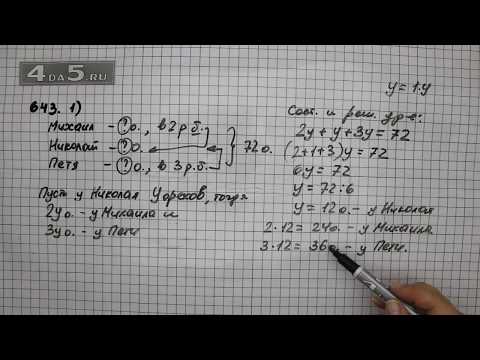 4DA5.RU
643. 1)
Михаил - ? о., в 2 р. б.
Николай - ? о.
Петя - ? о., в 3 р. б.
72 о.
Пусть у Николая y орехов, тогда
2y о. - у Михаила и
3y о. - у Пети
y = 1·y
Сост. и реш. ур-е:
2y + y + 3y = 72
(2+1+3)y = 72
6y = 72
y = 72:6
y = 12 о. - у Николая
2·12 = 24 о. - у Михаила
3·12 = 36 о. - у Пети.